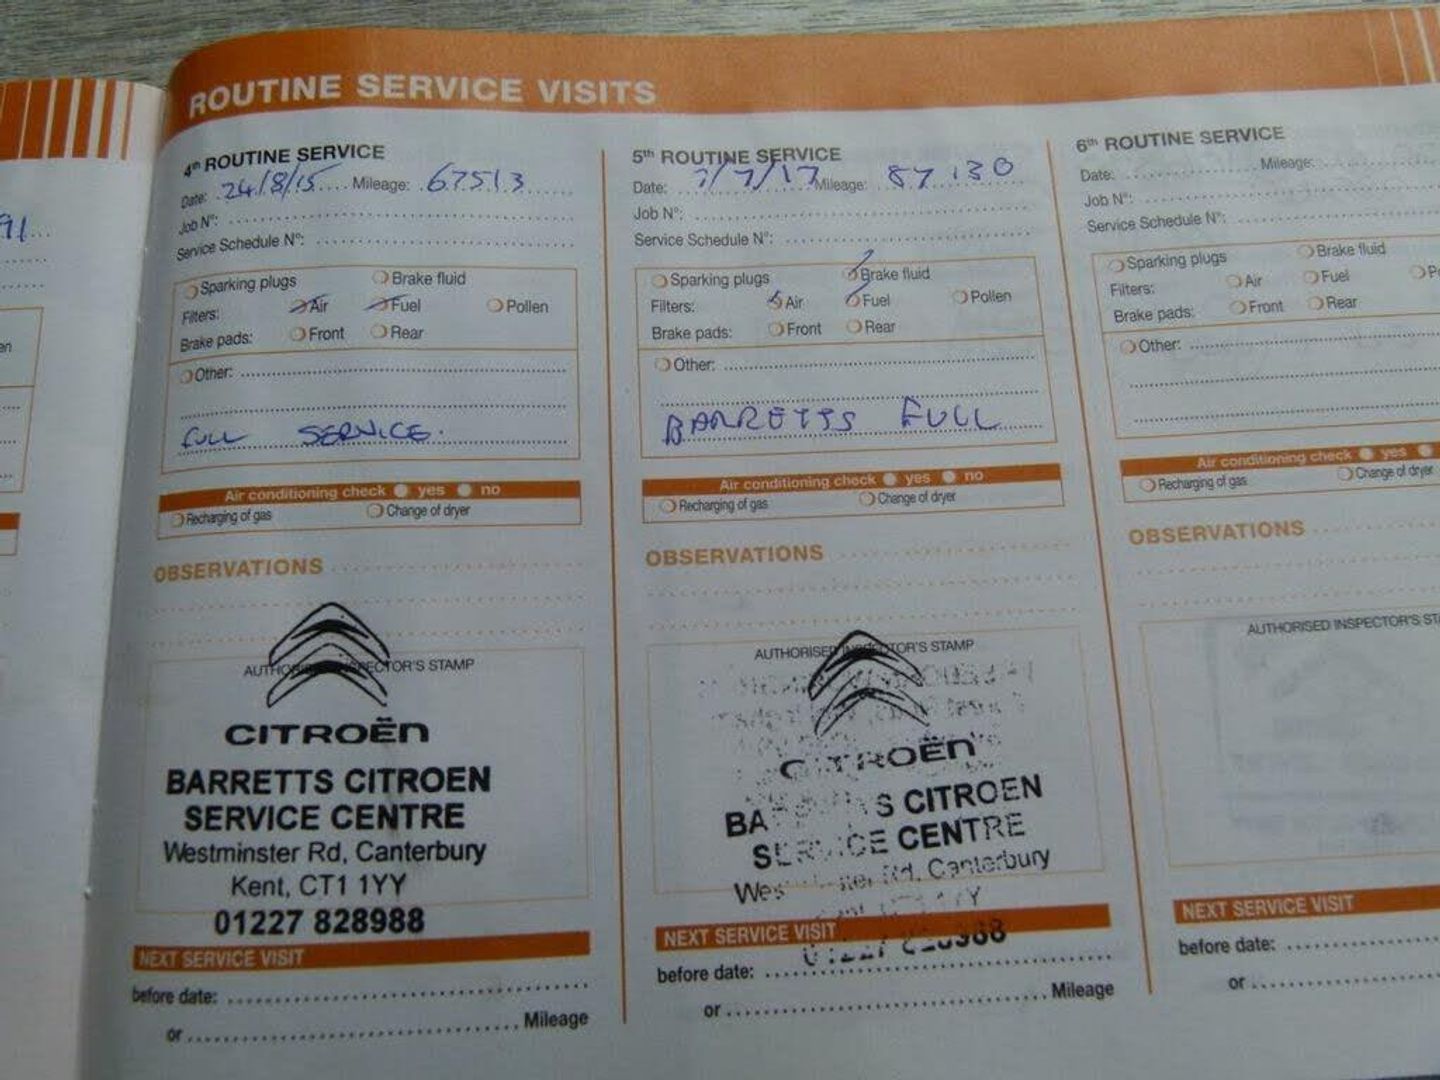 ROUTINE SERVICE VISITS
91
4th ROUTINE SERVICE
Date: 24/8/15 Mileage: 67513
Job N°:
Service Schedule N°:
Sparking plugs Brake fluid
Filters: Air Fuel Pollen
Brake pads: Front Rear
Other:
FULL SERVICE.
Air conditioning check yes no
Recharging of gas Change of dryer
OBSERVATIONS
AUTHORISED INSPECTOR'S STAMP
CITROËN
BARRETTS CITROEN
SERVICE CENTRE
Westminster Rd, Canterbury
Kent, CT1 1YY
01227 828988
NEXT SERVICE VISIT
before date:
or Mileage
5th ROUTINE SERVICE
Date: 7/7/17 Mileage: 87130
Job N°:
Service Schedule N°:
Sparking plugs Brake fluid
Filters: Air Fuel Pollen
Brake pads: Front Rear
Other:
BARRETTS FULL
Air conditioning check yes no
Recharging of gas Change of dryer
OBSERVATIONS
AUTHORISED INSPECTOR'S STAMP
CITROËN
BARRETTS CITROEN
SERVICE CENTRE
Westminster Rd, Canterbury
Kent, CT1 1YY
01227 828988
NEXT SERVICE VISIT
before date:
or Mileage
6th ROUTINE SERVICE
Date: Mileage:
Job N°:
Service Schedule N°:
Sparking plugs Brake fluid
Filters: Air Fuel
Brake pads: Front Rear
Other:
Air conditioning check yes
Recharging of gas Change of dryer
OBSERVATIONS
AUTHORISED INSPECTOR'S
NEXT SERVICE VISIT
before date:
or